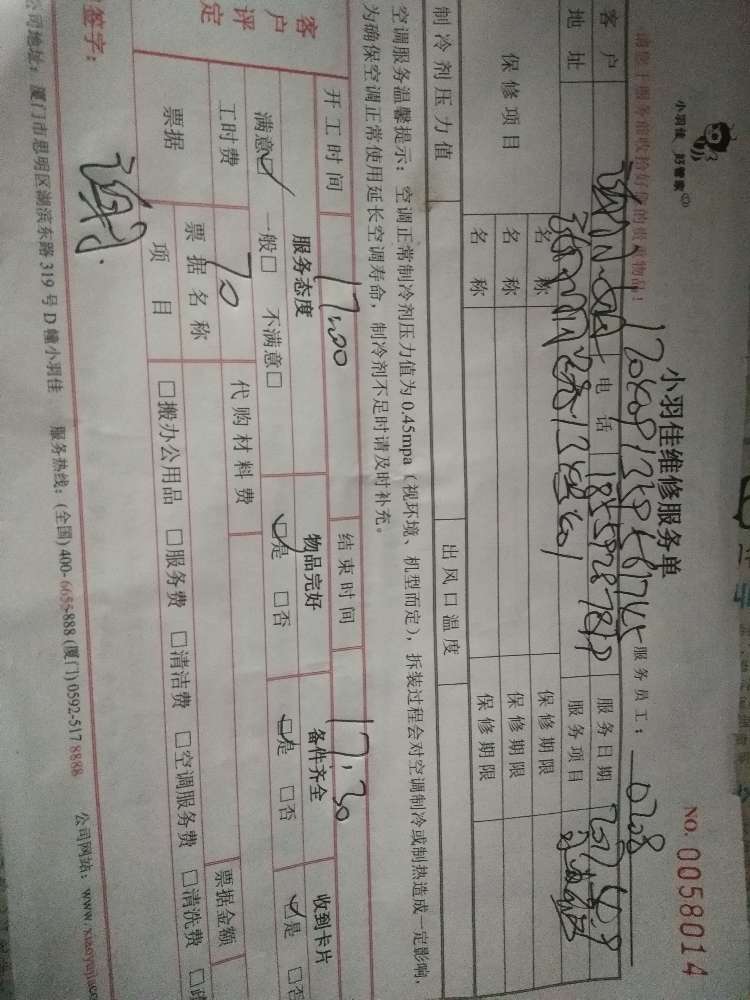 小羽佳 好管家
小羽佳维修服务单
NO. 0058014
请您于服务前收拾好您的贵重物品！
服务员工： 0208
客户
电话
服务日期
地址
服务项目
保修项目 名称 保修期限
名称 保修期限
名称 保修期限
制冷剂压力值 出风口温度
空调服务温馨提示：空调正常制冷剂压力值为0.45mpa（视环境、机型而定），拆装过程会对空调制冷或制热造成一定影响，
为确保空调正常使用延长空调寿命，制冷剂不足时请及时补充。
开工时间 17:00 结束时间 17:30
客户评定 服务态度 物品完好 备件齐全 收到卡片
满意☑ 一般□ 不满意□ ☑是 □否 ☑是 □否 ☑是 □否
工时费 70 代购材料费 票据金额
票据 票据名称
项目 □搬办公用品 □服务费 □清洁费 □空调服务费 □清洗费
签字：
公司地址：厦门市思明区湖滨东路319号D幢小羽佳 服务热线：(全国) 400-6655-888 (厦门) 0592-517 8888 公司网站：www.xiaoyuj